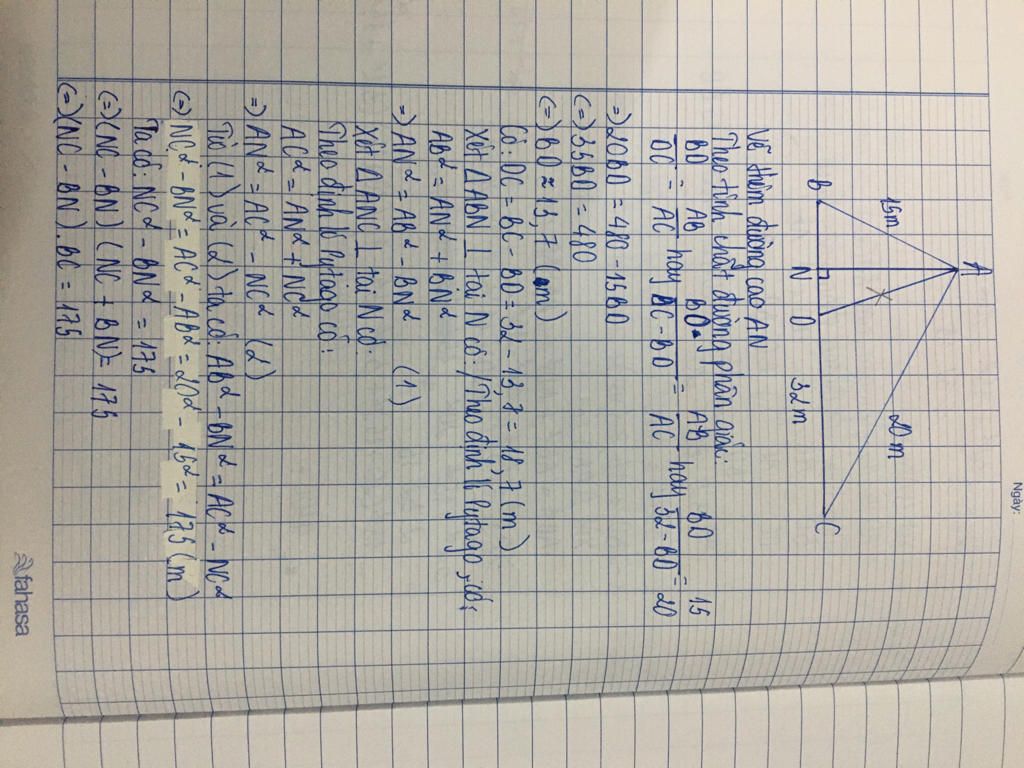 Ngày:
A
15m
20m
B
N
D
32m
C
Vẽ thêm đường cao AN
Theo tính chất đường phân giác:
BD/DC = AB/AC hay BD/BC-BD = AB/AC hay BD/32-BD = 15/20
=) 20BD = 480 - 15BD
(=) 35BD = 480
(=) BD ≈ 13,7 (m)
Có: DC = BC - BD = 32 - 13,7 = 18,7 (m)
Xét Δ ABN ⊥ tại N có: Theo định lí Pytago, có:
AB² = AN² + BN²
=) AN² = AB² - BN² (1)
Xét Δ ANC ⊥ tại N có:
Theo định lí Pytago có:
AC² = AN² + NC²
=) AN² = AC² - NC² (2)
Từ (1) và (2) ta có: AB² - BN² = AC² - NC²
(=) NC² - BN² = AC² - AB² = 20² - 15² = 175 (m)
Ta có: NC² - BN² = 175
(=) (NC - BN) (NC + BN) = 175
(=) (NC - BN). BC = 175
fahasa